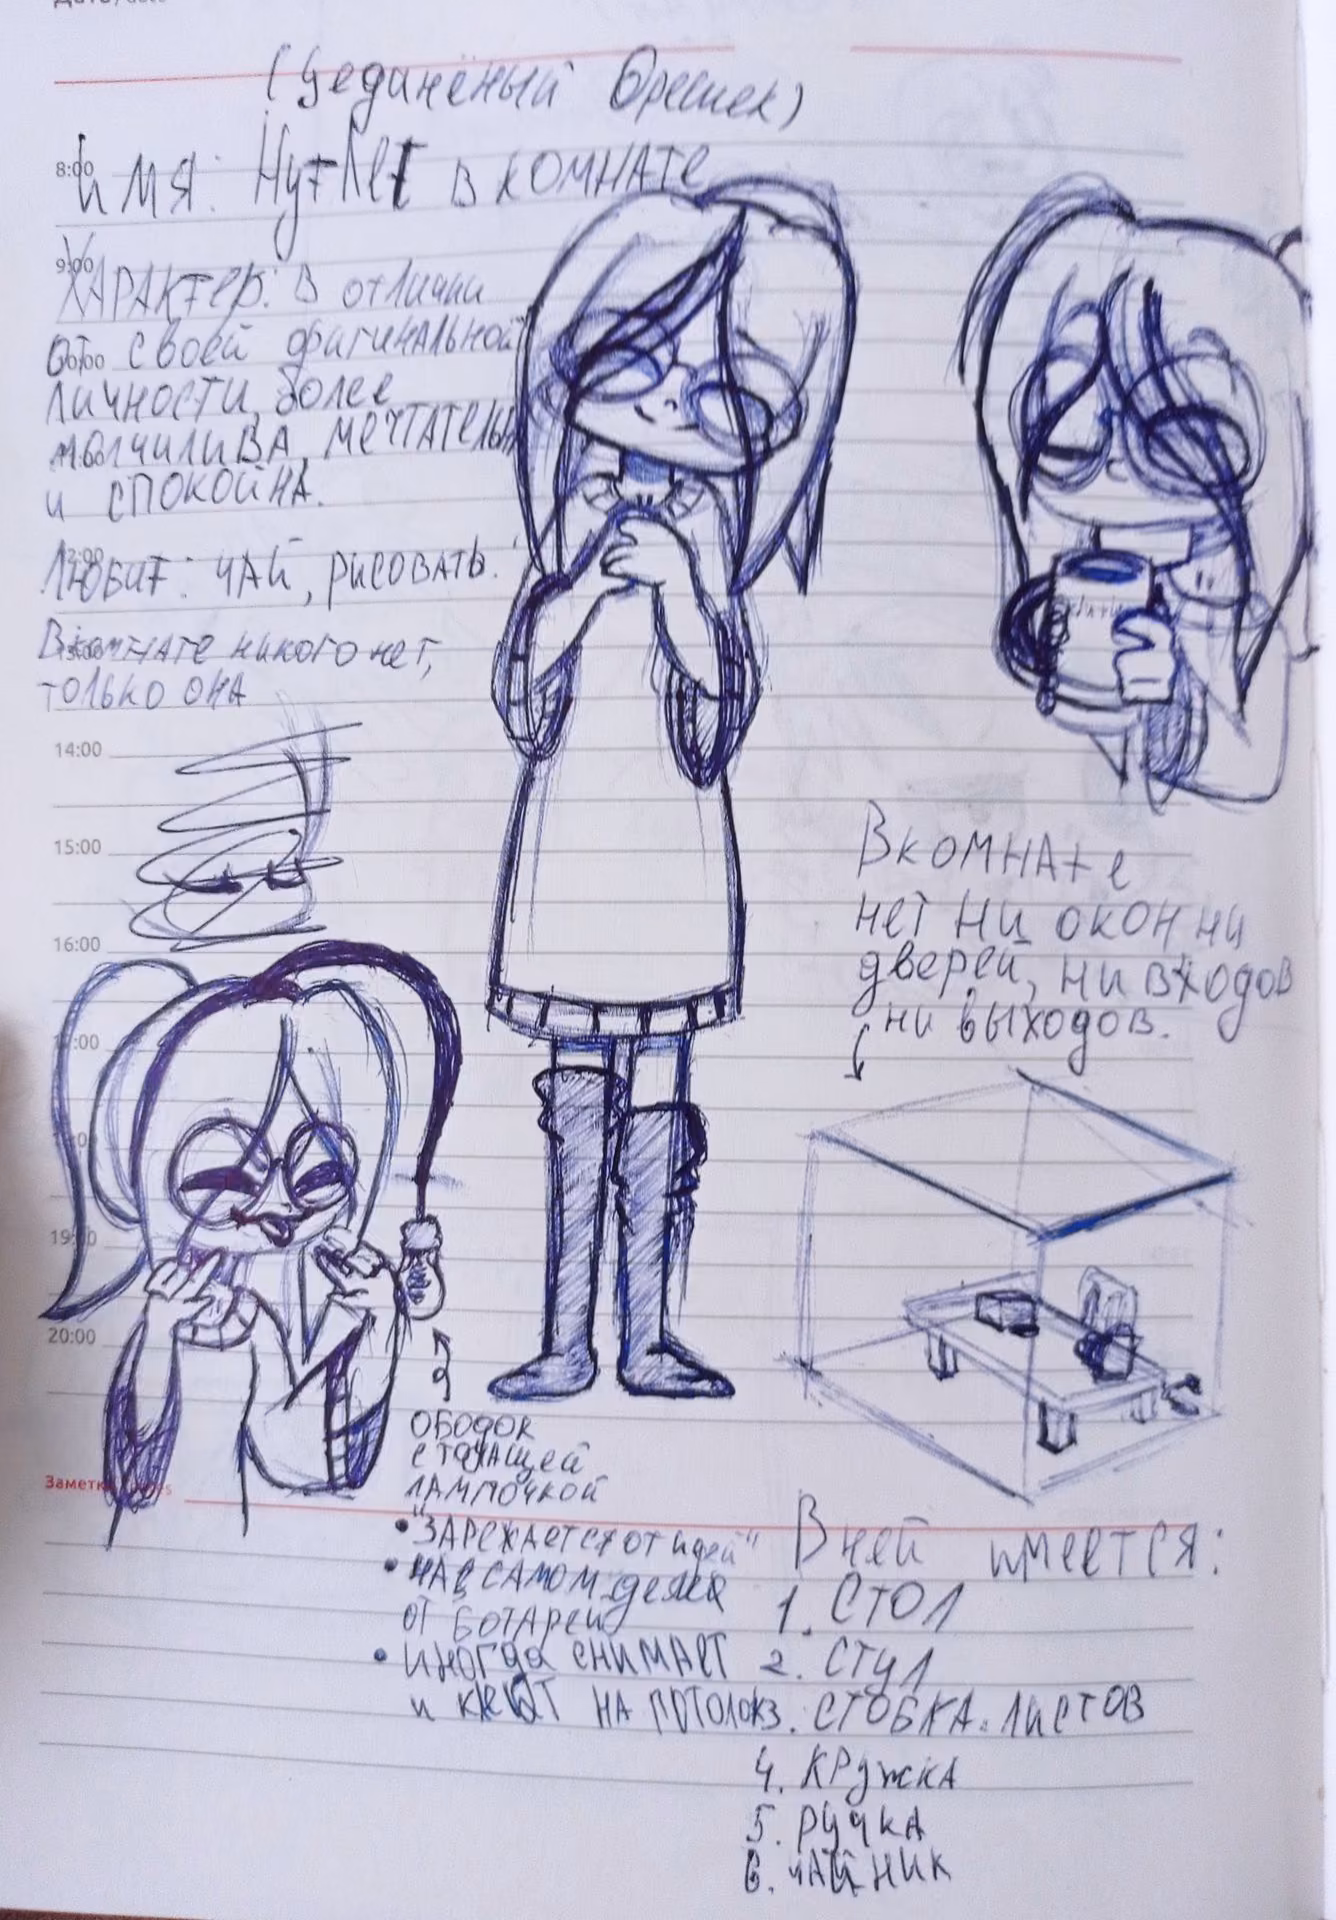 (Уединёный Орешек)
Имя: в комнате
Характер: в отличии
от своей оригинальной
личности, более
молчилива, мечтательн
и спокойна.
Любит: чай, рисовать.
В комнате никого нет,
только она
В комнате
нет ни окон ни
дверей, ни входов
ни выходов.
ободок
с
лампочкой
• "зарежается от идей"
• на самом деле
от ботареи
• иногда снимает
и на потолок
В ней имеется:
1. стол
2. стул
3. стобка листов
4. кружка
5. ручка
6. чайник
8:00
9:00
14:00
15:00
16:00
20:00
Заметки